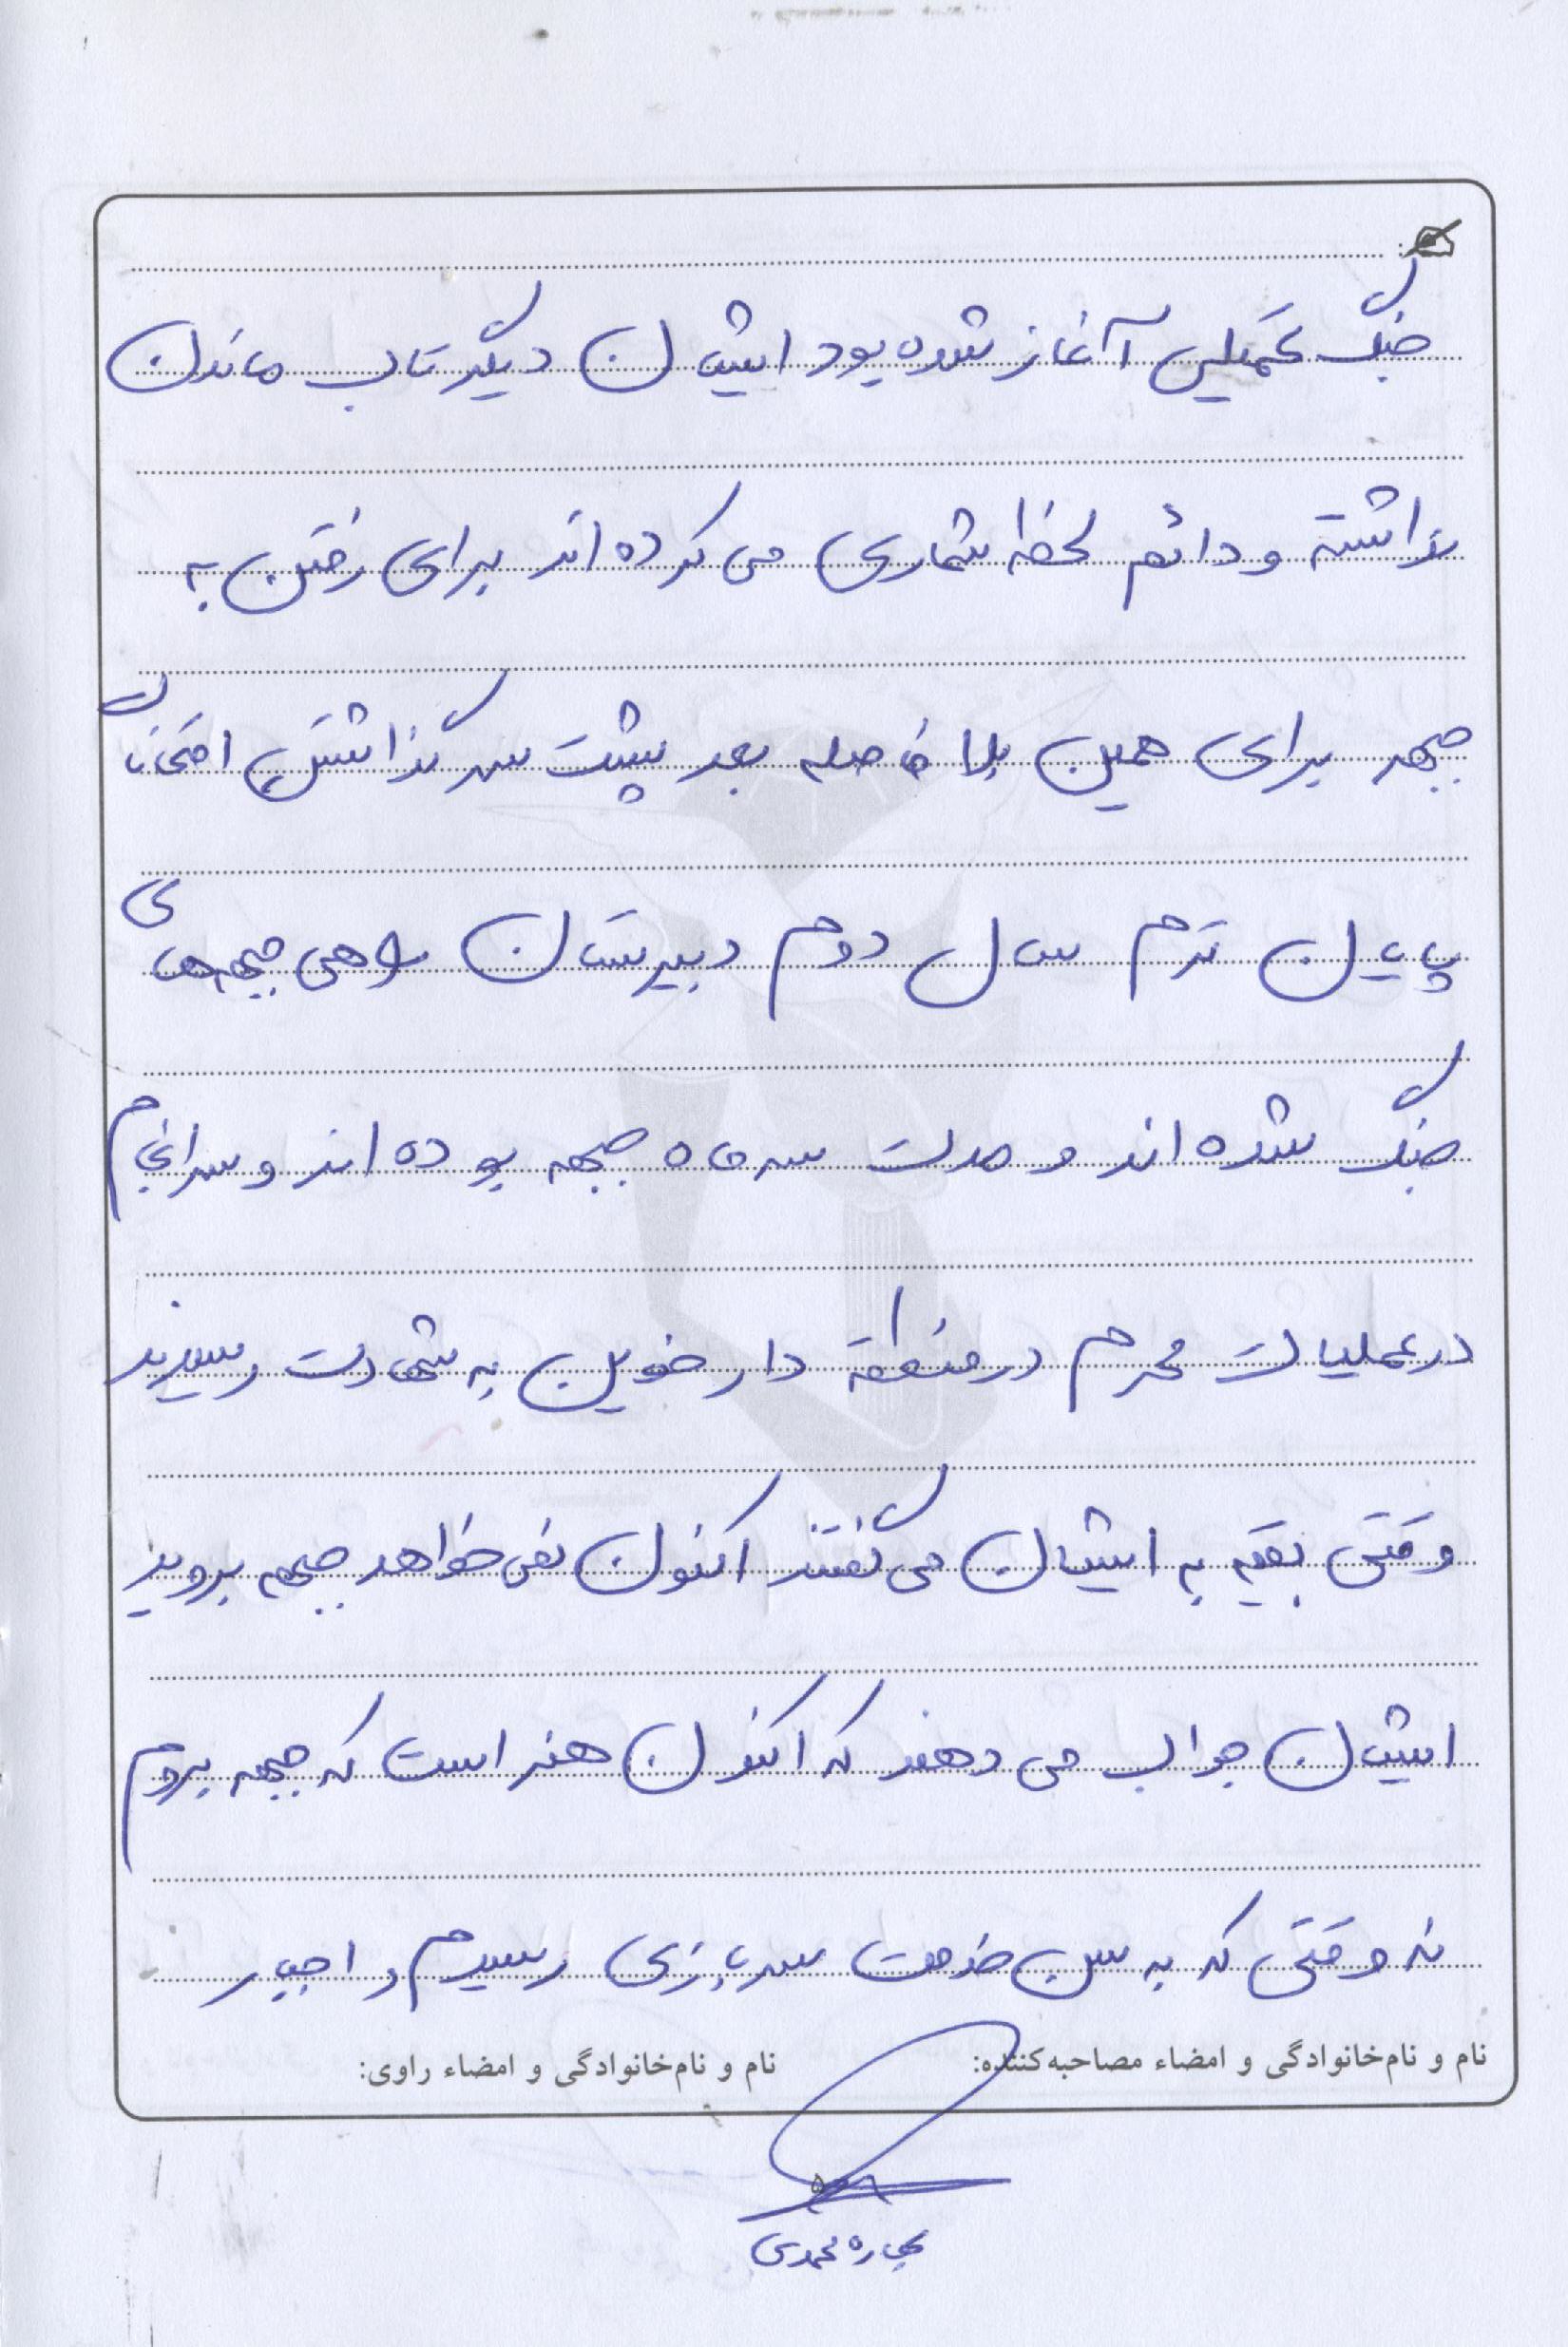 جنگ تحمیلی آغاز شده بود ایشان دیگر تاب ماندن
نداشته و دائم لحظه شماری می کرده اند برای رفتن به
جبهه برای همین بلا فاصله بعد پشت سر گذاشتن امتحانات
پایان ترم سال دوم دبیرستان راهی جبهه های
جنگ شده اند و مدت سه ماه جبهه بوده اند و سرانجام
در عملیات محرم در منطقه دارخوین به شهادت رسیدند
وقتی بقیه به ایشان می گفتند اکنون نمی خواهد جبهه بروید
ایشان جواب می دهند که اکنون هنر است که جبهه بروم
نه وقتی که به سن خدمت سربازی رسیدم و اجبار
نام و نام‌خانوادگی و امضاء مصاحبه‌کننده:
نام و نام‌خانوادگی و امضاء راوی:
۵
محمدی